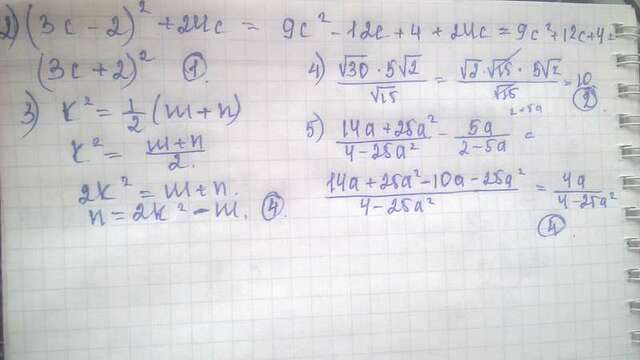 2) (3c - 2)² + 24c = 9c² - 12c + 4 + 24c = 9c² + 12c + 4 =
(3c + 2)² ①
3) k² = 1/2 (m + n)
k² = (m + n)/2.
2k² = m + n.
n = 2k² - m. ④
4) (√30 · 5√2)/√15 = (√2 · √15 · 5√2)/√15 = 10 ②
5) (14a + 25a²)/(4 - 25a²) - 5a/(2 - 5a) ^(2+5a) =
(14a + 25a² - 10a - 25a²)/(4 - 25a²) = 4a/(4 - 25a²)
④